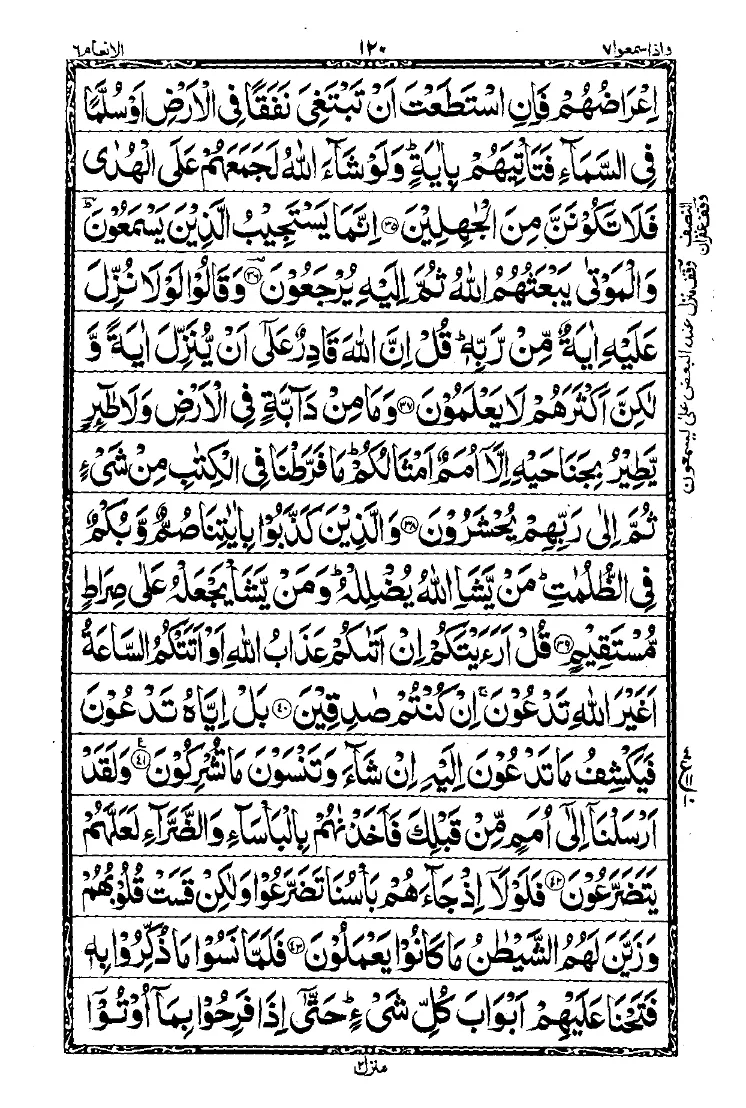 واذا سمعوا ٧ ١٢٠ الانعام ٦
اِعْرَاضُهُمْ فَاِنِ اسْتَطَعْتَ اَنْ تَبْتَغِیَ نَفَقًا فِی الْاَرْضِ اَوْ سُلَّمًا
فِی السَّمَآءِ فَتَاْتِیَهُمْ بِاٰیَةٍ ؕ وَلَوْ شَآءَ اللّٰهُ لَجَمَعَهُمْ عَلَی الْهُدٰی
فَلَا تَكُوْنَنَّ مِنَ الْجٰهِلِیْنَ ۝٣٥ اِنَّمَا یَسْتَجِیْبُ الَّذِیْنَ یَسْمَعُوْنَ ؕ
وَالْمَوْتٰی یَبْعَثُهُمُ اللّٰهُ ثُمَّ اِلَیْهِ یُرْجَعُوْنَ ۝٣٦ وَقَالُوْا لَوْلَا نُزِّلَ
عَلَیْهِ اٰیَةٌ مِّنْ رَّبِّهٖ ؕ قُلْ اِنَّ اللّٰهَ قَادِرٌ عَلٰۤی اَنْ یُّنَزِّلَ اٰیَةً وَّ
لٰكِنَّ اَكْثَرَهُمْ لَا یَعْلَمُوْنَ ۝٣٧ وَمَا مِنْ دَآبَّةٍ فِی الْاَرْضِ وَلَا طٰٓئِرٍ
یَّطِیْرُ بِجَنَاحَیْهِ اِلَّاۤ اُمَمٌ اَمْثَالُكُمْ ؕ مَا فَرَّطْنَا فِی الْكِتٰبِ مِنْ شَیْءٍ
ثُمَّ اِلٰی رَبِّهِمْ یُحْشَرُوْنَ ۝٣٨ وَالَّذِیْنَ كَذَّبُوْا بِاٰیٰتِنَا صُمٌّ وَّبُكْمٌ
فِی الظُّلُمٰتِ ؕ مَنْ یَّشَاِ اللّٰهُ یُضْلِلْهُ ؕ وَمَنْ یَّشَاْ یَجْعَلْهُ عَلٰی صِرَاطٍ
مُّسْتَقِیْمٍ ۝٣٩ قُلْ اَرَءَیْتَكُمْ اِنْ اَتٰىكُمْ عَذَابُ اللّٰهِ اَوْ اَتَتْكُمُ السَّاعَةُ
اَغَیْرَ اللّٰهِ تَدْعُوْنَ ۚ اِنْ كُنْتُمْ صٰدِقِیْنَ ۝٤٠ بَلْ اِیَّاهُ تَدْعُوْنَ
فَیَكْشِفُ مَا تَدْعُوْنَ اِلَیْهِ اِنْ شَآءَ وَتَنْسَوْنَ مَا تُشْرِكُوْنَ ۝٤١ وَلَقَدْ
اَرْسَلْنَاۤ اِلٰۤی اُمَمٍ مِّنْ قَبْلِكَ فَاَخَذْنٰهُمْ بِالْبَاْسَآءِ وَالضَّرَّآءِ لَعَلَّهُمْ
یَتَضَرَّعُوْنَ ۝٤٢ فَلَوْلَاۤ اِذْ جَآءَهُمْ بَاْسُنَا تَضَرَّعُوْا وَلٰكِنْ قَسَتْ قُلُوْبُهُمْ
وَزَیَّنَ لَهُمُ الشَّیْطٰنُ مَا كَانُوْا یَعْمَلُوْنَ ۝٤٣ فَلَمَّا نَسُوْا مَا ذُكِّرُوْا بِهٖ
فَتَحْنَا عَلَیْهِمْ اَبْوَابَ كُلِّ شَیْءٍ ؕ حَتّٰۤی اِذَا فَرِحُوْا بِمَاۤ اُوْتُوْۤا
منزل ٢
النصف
وقف غفران
وقف منزل عند البعض على يسمعون